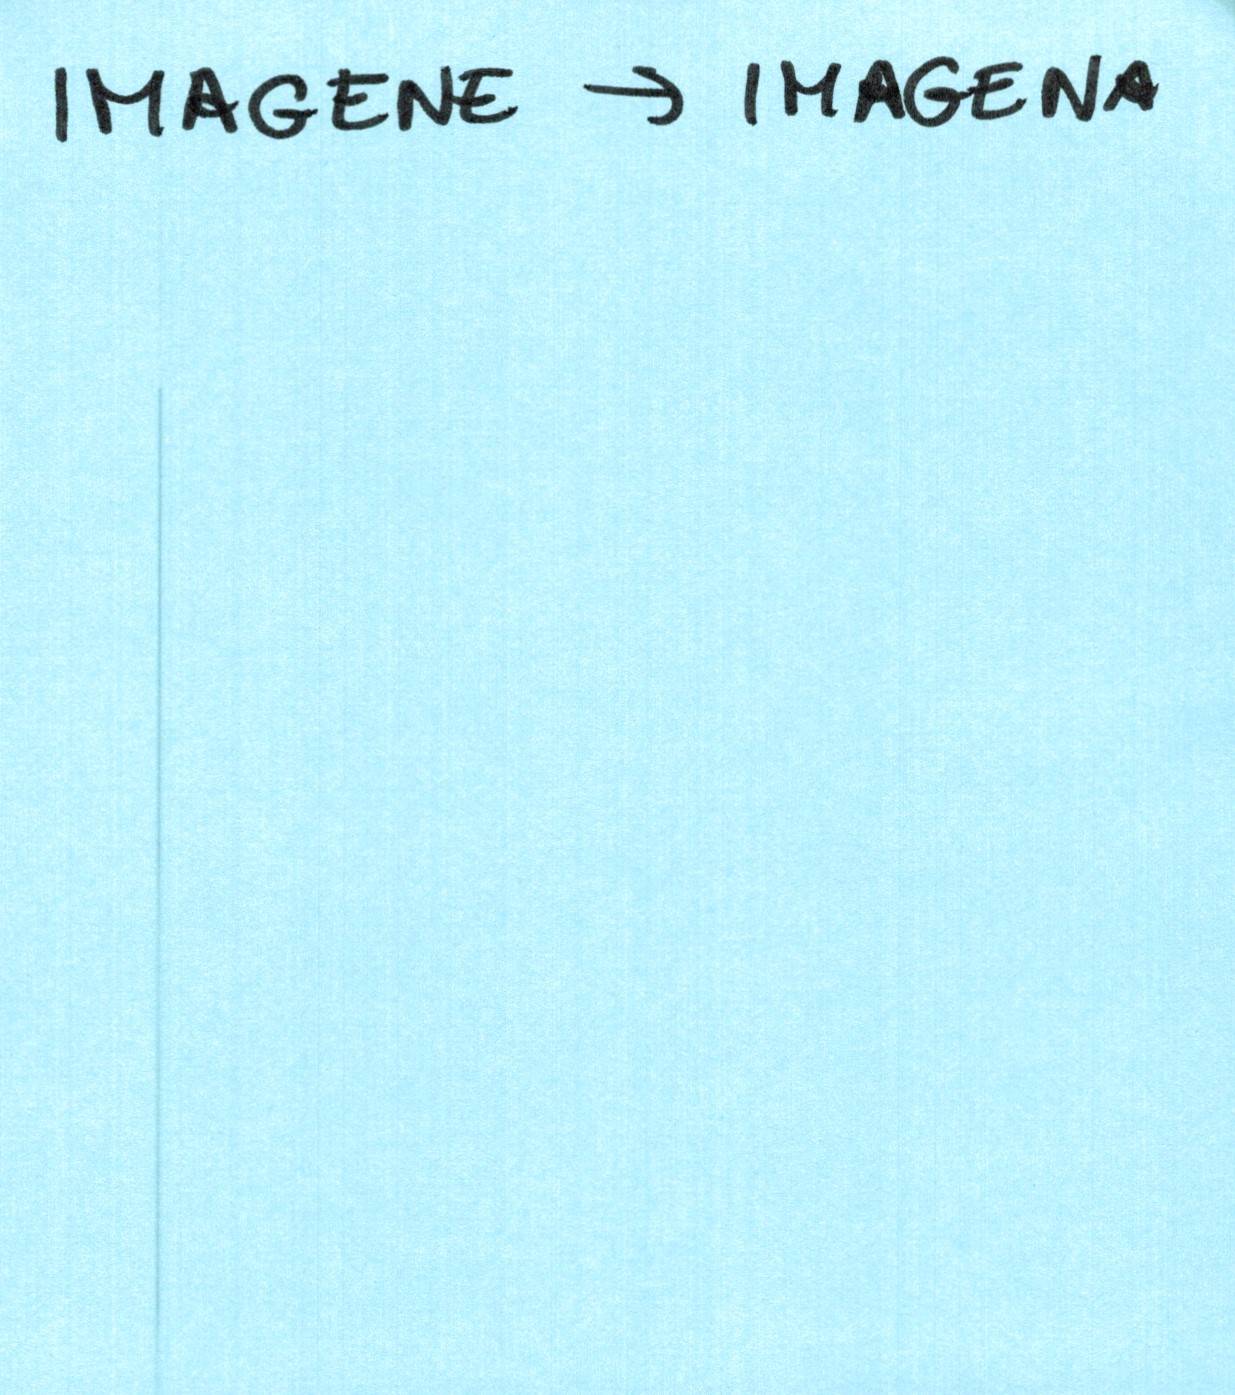 IMAGENE → IMAGENA